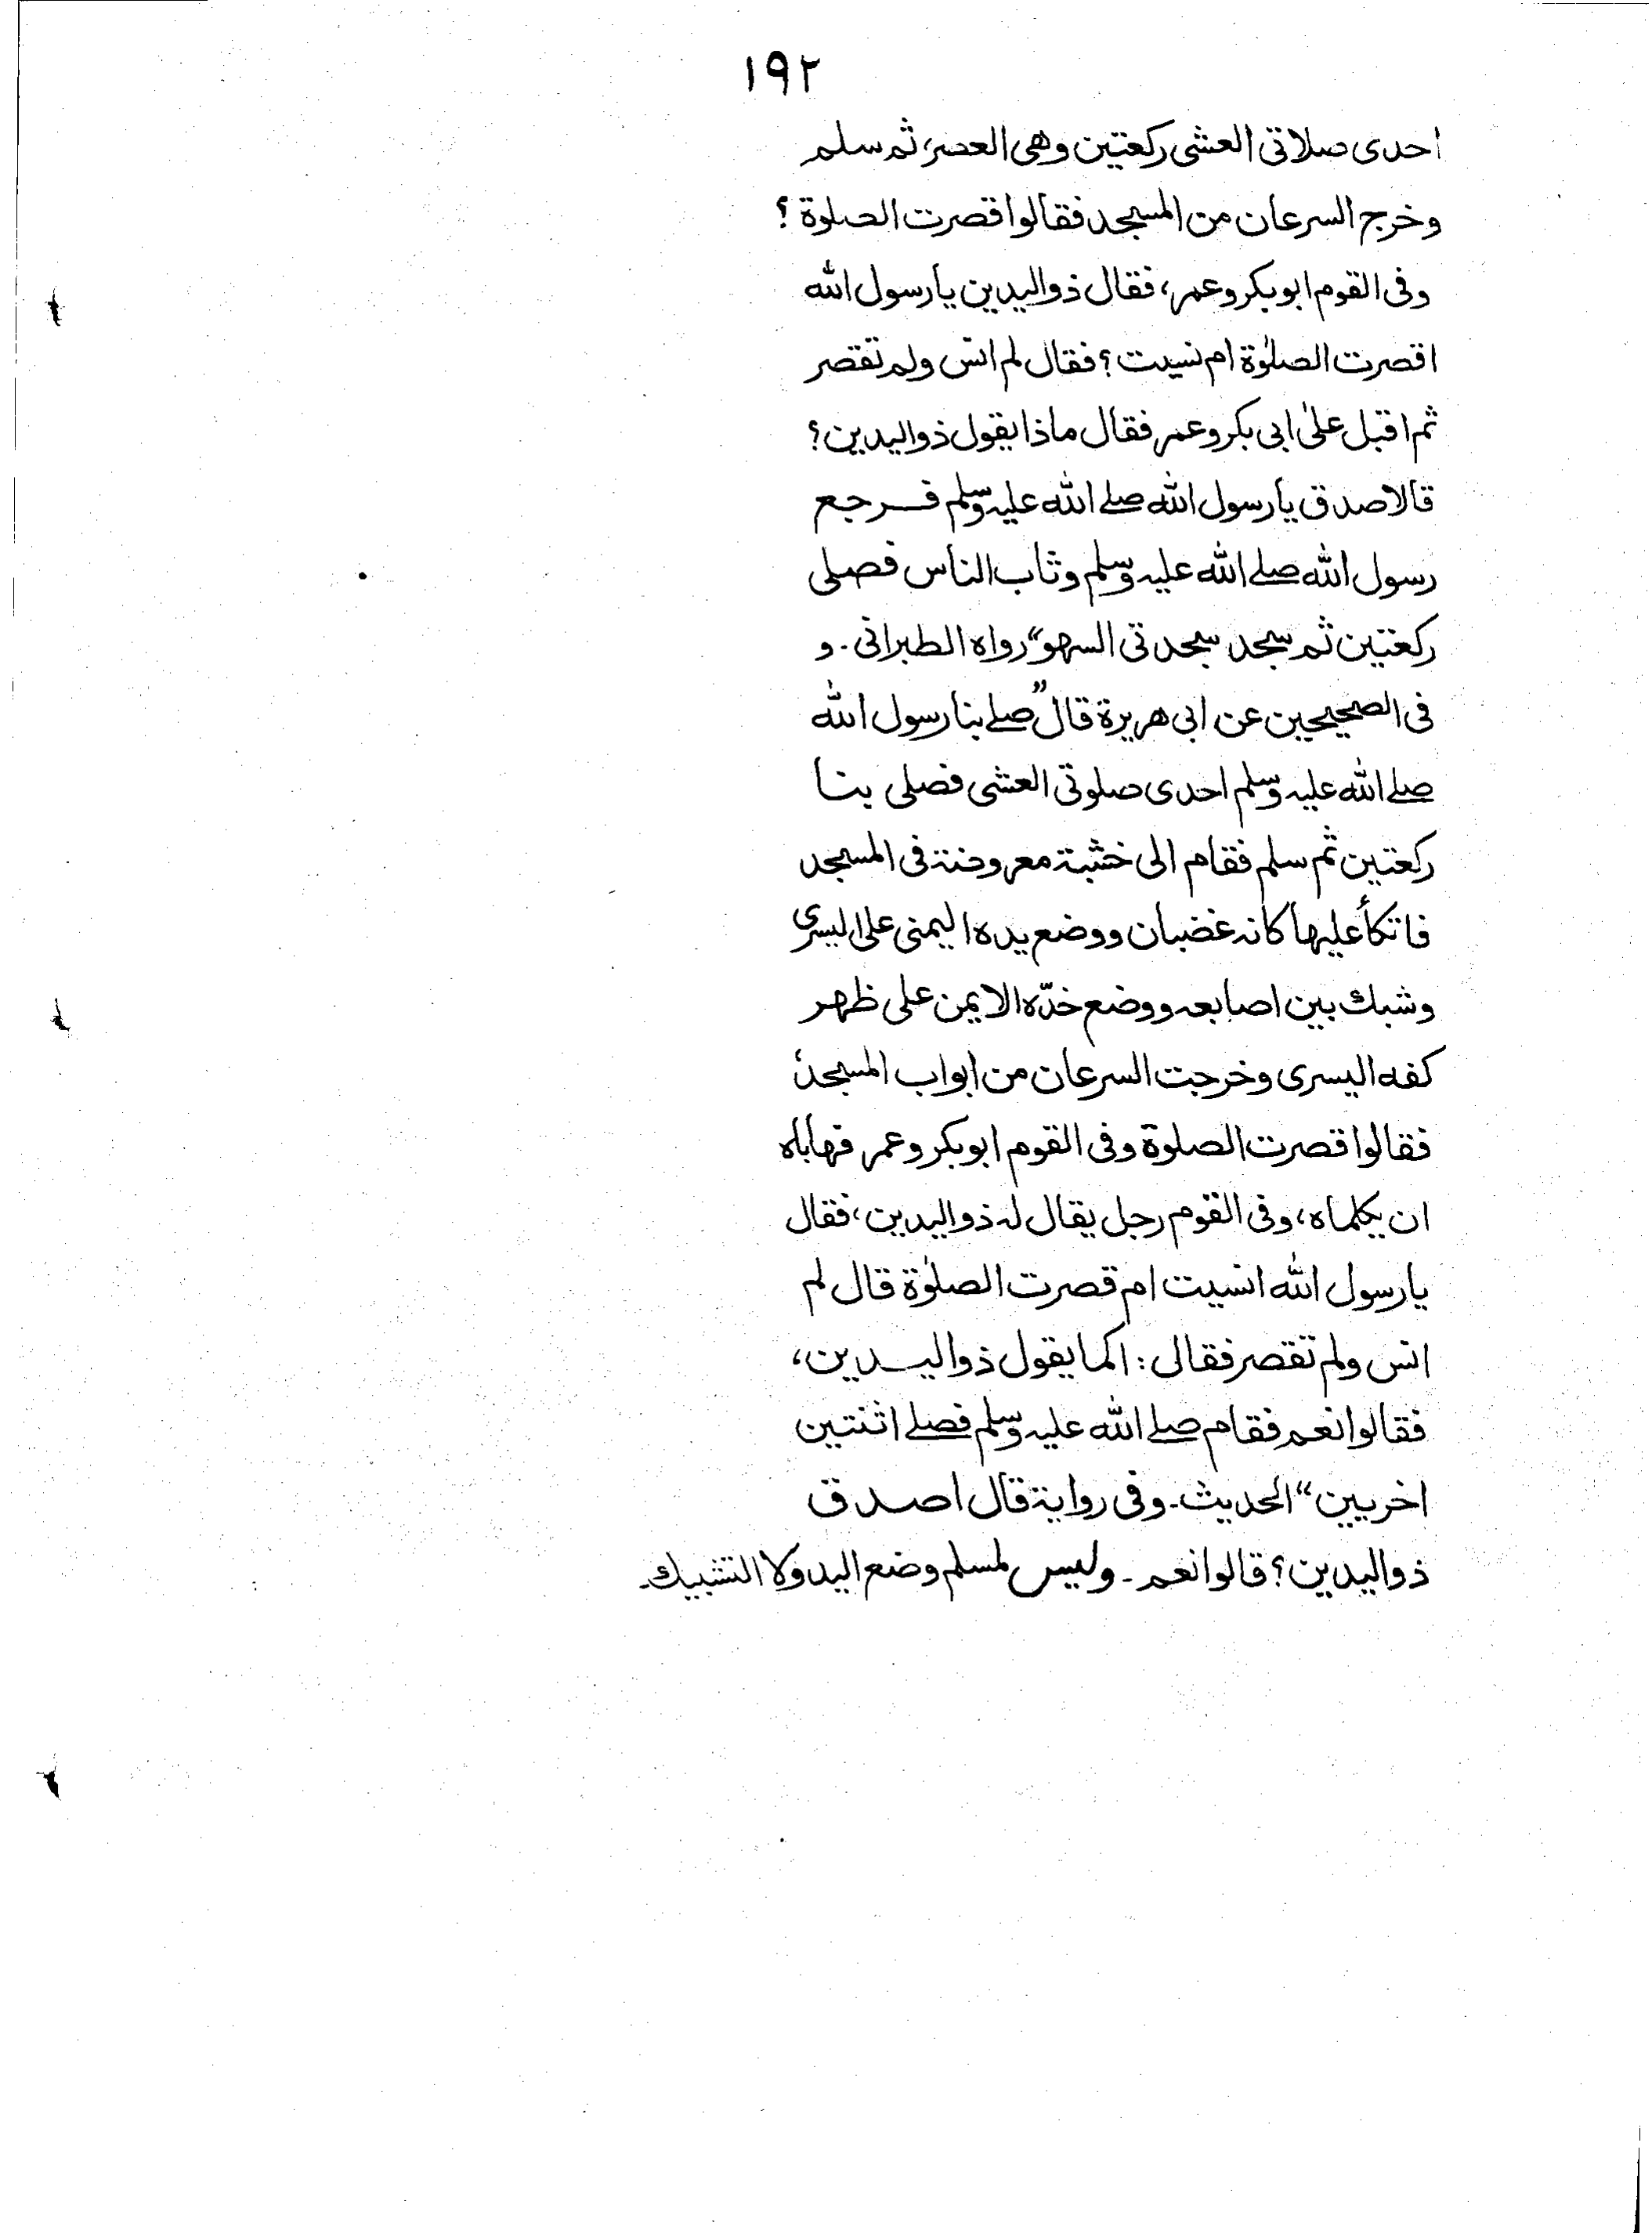 ۱۹۲
احدى صلاتى العشى ركعتين وهى العصر، ثم سلم
وخرج السرعان من المسجد فقالوا قصرت الصلوة ؟
وفى القوم ابوبكر وعمر، فقال ذواليدين يارسول الله
اقصرت الصلوٰة ام نسيت ؟ فقال لم انس ولم تقصر
ثم اقبل علىٰ ابى بكر وعمر فقال ماذا يقول ذواليدين؟
قالا صدق يارسول الله صلے الله عليه وسلم فـرجع
رسول الله صلے الله عليه وسلم وثاب الناس فصلى
ركعتين ثم سجد سجدتى السهو“ رواه الطبرانى . و
فى الصحيحين عن ابى هريرة قال ”صلے بنا رسول الله
صلے الله عليه وسلم احدى صلوتى العشى فصلى بنا
ركعتين ثم سلم فقام الى خشبة معروضة فى المسجد
فاتكأ عليها كانه غضبان ووضع يده اليمنى على اليسرى
وشبك بين اصابعه ووضع خدّه الايمن على ظهر
كفه اليسرى وخرجت السرعان من ابواب المسجد،
فقالوا قصرت الصلوة وفى القوم ابوبكر وعمر فهاباه
ان يكلماه، وفى القوم رجل يقال له ذواليدين، فقال
يارسول الله انسيت ام قصرت الصلوٰة قال لم
انس ولم تقصر فقال : اكما يقول ذواليـدين،
فقالوا نعم فقام صلے الله عليه وسلم فصلے اثنتين
اخريين“ الحديث۔ وفى رواية قال اصدق
ذواليدين؟ قالوا نعم ۔ وليس لمسلم وضع اليد ولا التشبيك۔